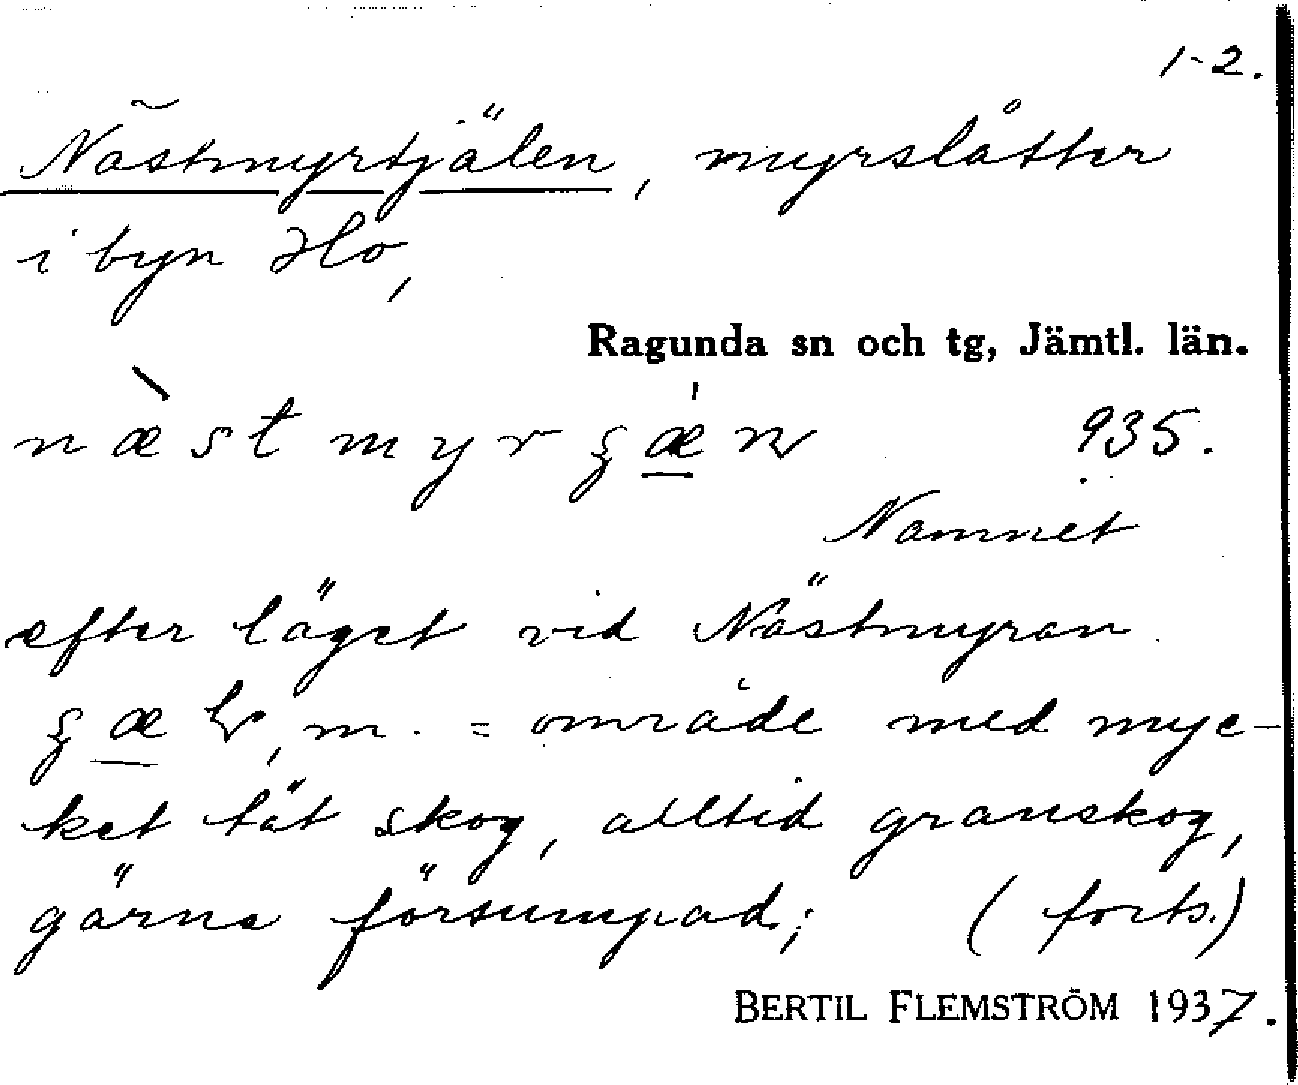 1-2.
Nästmyrtjälen, myrslåtter
i byn Ho,
Ragunda sn och tg, Jämtl. län.
935.
Namnet
efter läget vid Nästmyran
m. = område med myc-
ket tät skog, alltid granskog,
gärna försumpad; (forts.)
BERTIL FLEMSTRÖM 1937.